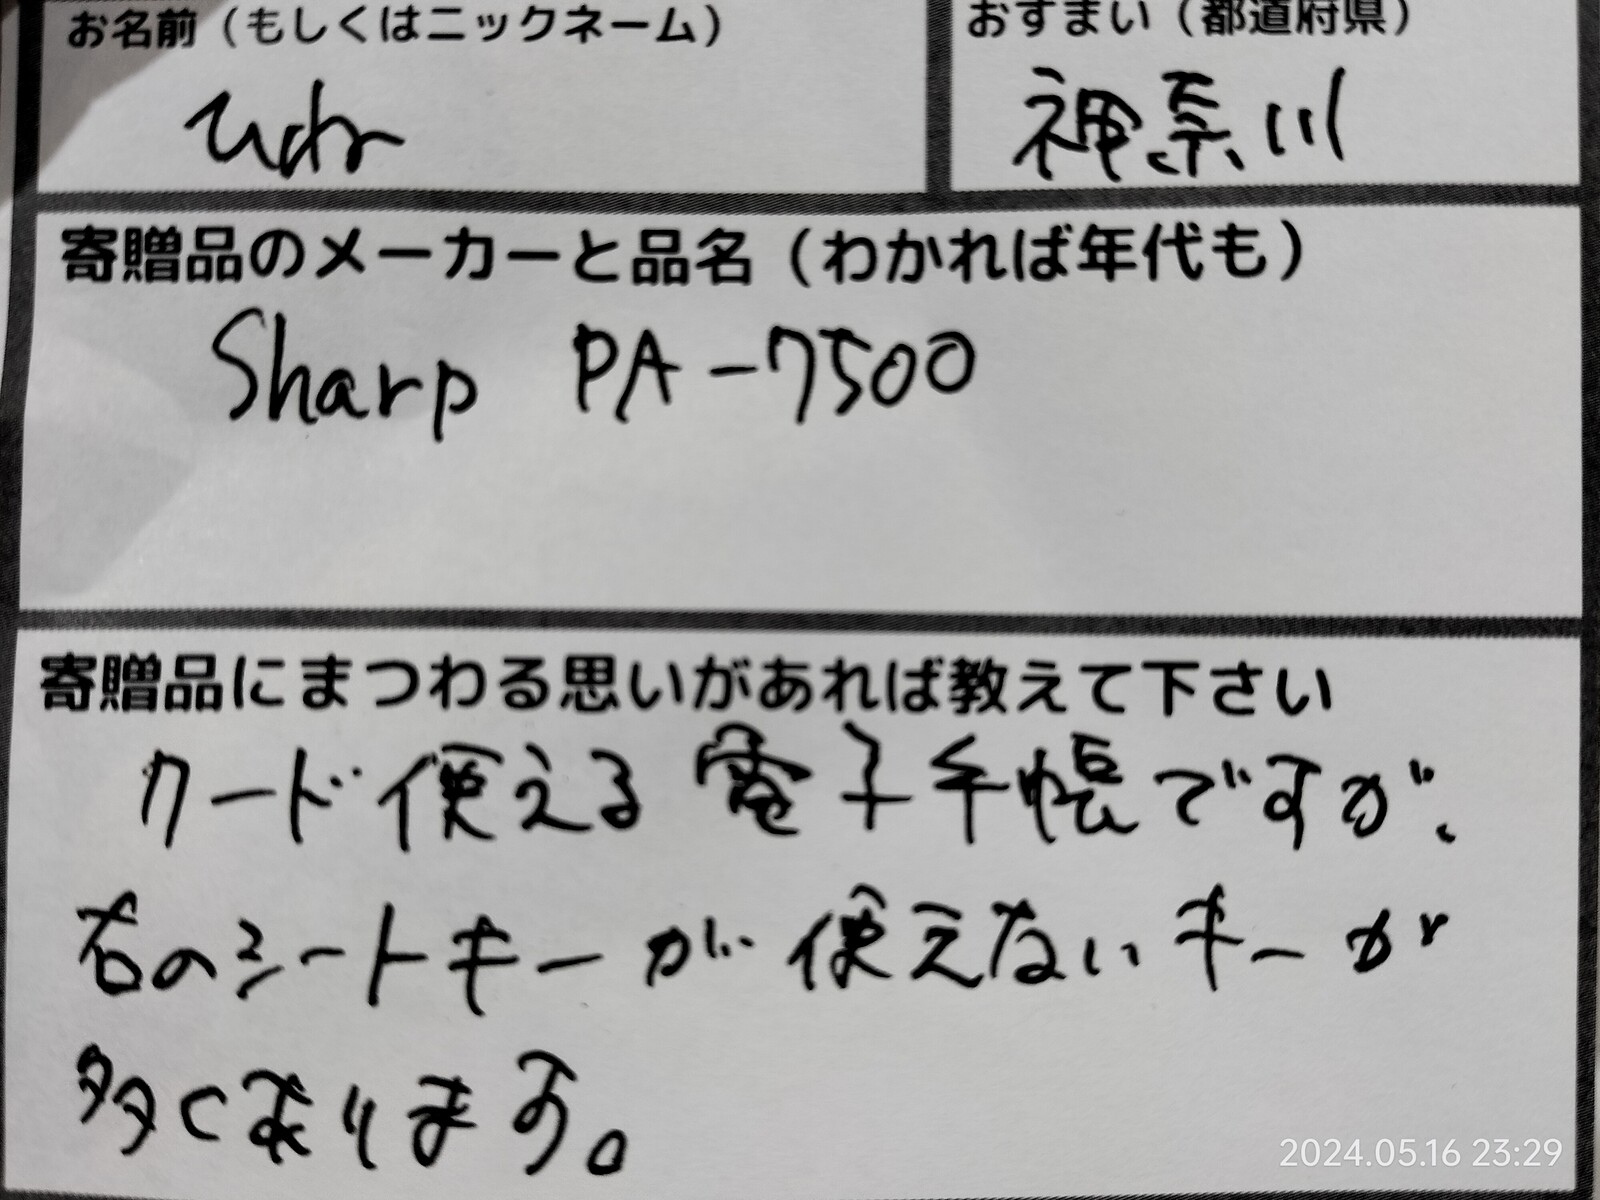 お名前（もしくはニックネーム）
おすまい（都道府県）
神奈川
寄贈品のメーカーと品名（わかれば年代も）
Sharp PA-7500
寄贈品にまつわる思いがあれば教えて下さい
カード使える電子手帳ですが、
右のシートキーが使えないキーが
多くあります。
2024.05.16 23:29